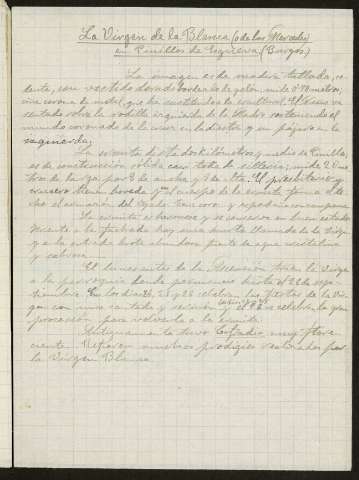 La Virgen de la Blanca (o de las Mercedes)
en Pinillos de Esgueva (Burgos)
La imagen es de madera tallada, se-
dente, con vestido dorado bordes de galón, mide 0'78 metros,
una corona de metal, que ha sustituido la escultural. El Niño va
sentado sobre la rodilla izquierda de la Madre sosteniendo el
mundo coronado de la cruz en la diestra y un pájaro en la
izquierda;
La ermita dista dos kilómetros y medio de Pinillos,
es de construcción sólida casi toda de sillería; mide 20 me-
tros de larga por 8 de ancha y 8 de alta. El presbiterio y
crucero tienen bóveda y en el cuerpo de la ermita forma el te-
cho el armazón del tejado. Con coro y espadaña con campana
La ermita es hermosa y se conserva en buen estado
Frente a la fachada hay una fuente llamada de la Virgen
y a la entrada brota abundosa fuente de agua cristalina
y sabrosa.
El lunes antes de la Ascensión traen la Virgen
a la parroquia donde permanece hasta el 28 de sep-
tiembre. En los días 26, 27 y 28 celebran las fiestas de la Vir-
gen con misa cantada y sermón, y el 28 se celebra la gran
procesión para volverla a la ermita.
Antiguamente tuvo Cofradía muy flore-
ciente. Refieren muchos prodigios realizados por
la Virgen Blanca.